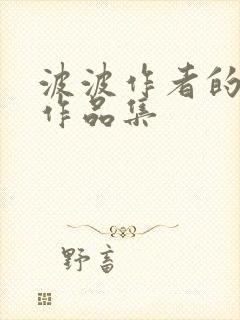 波波作者的
作品集
野畜